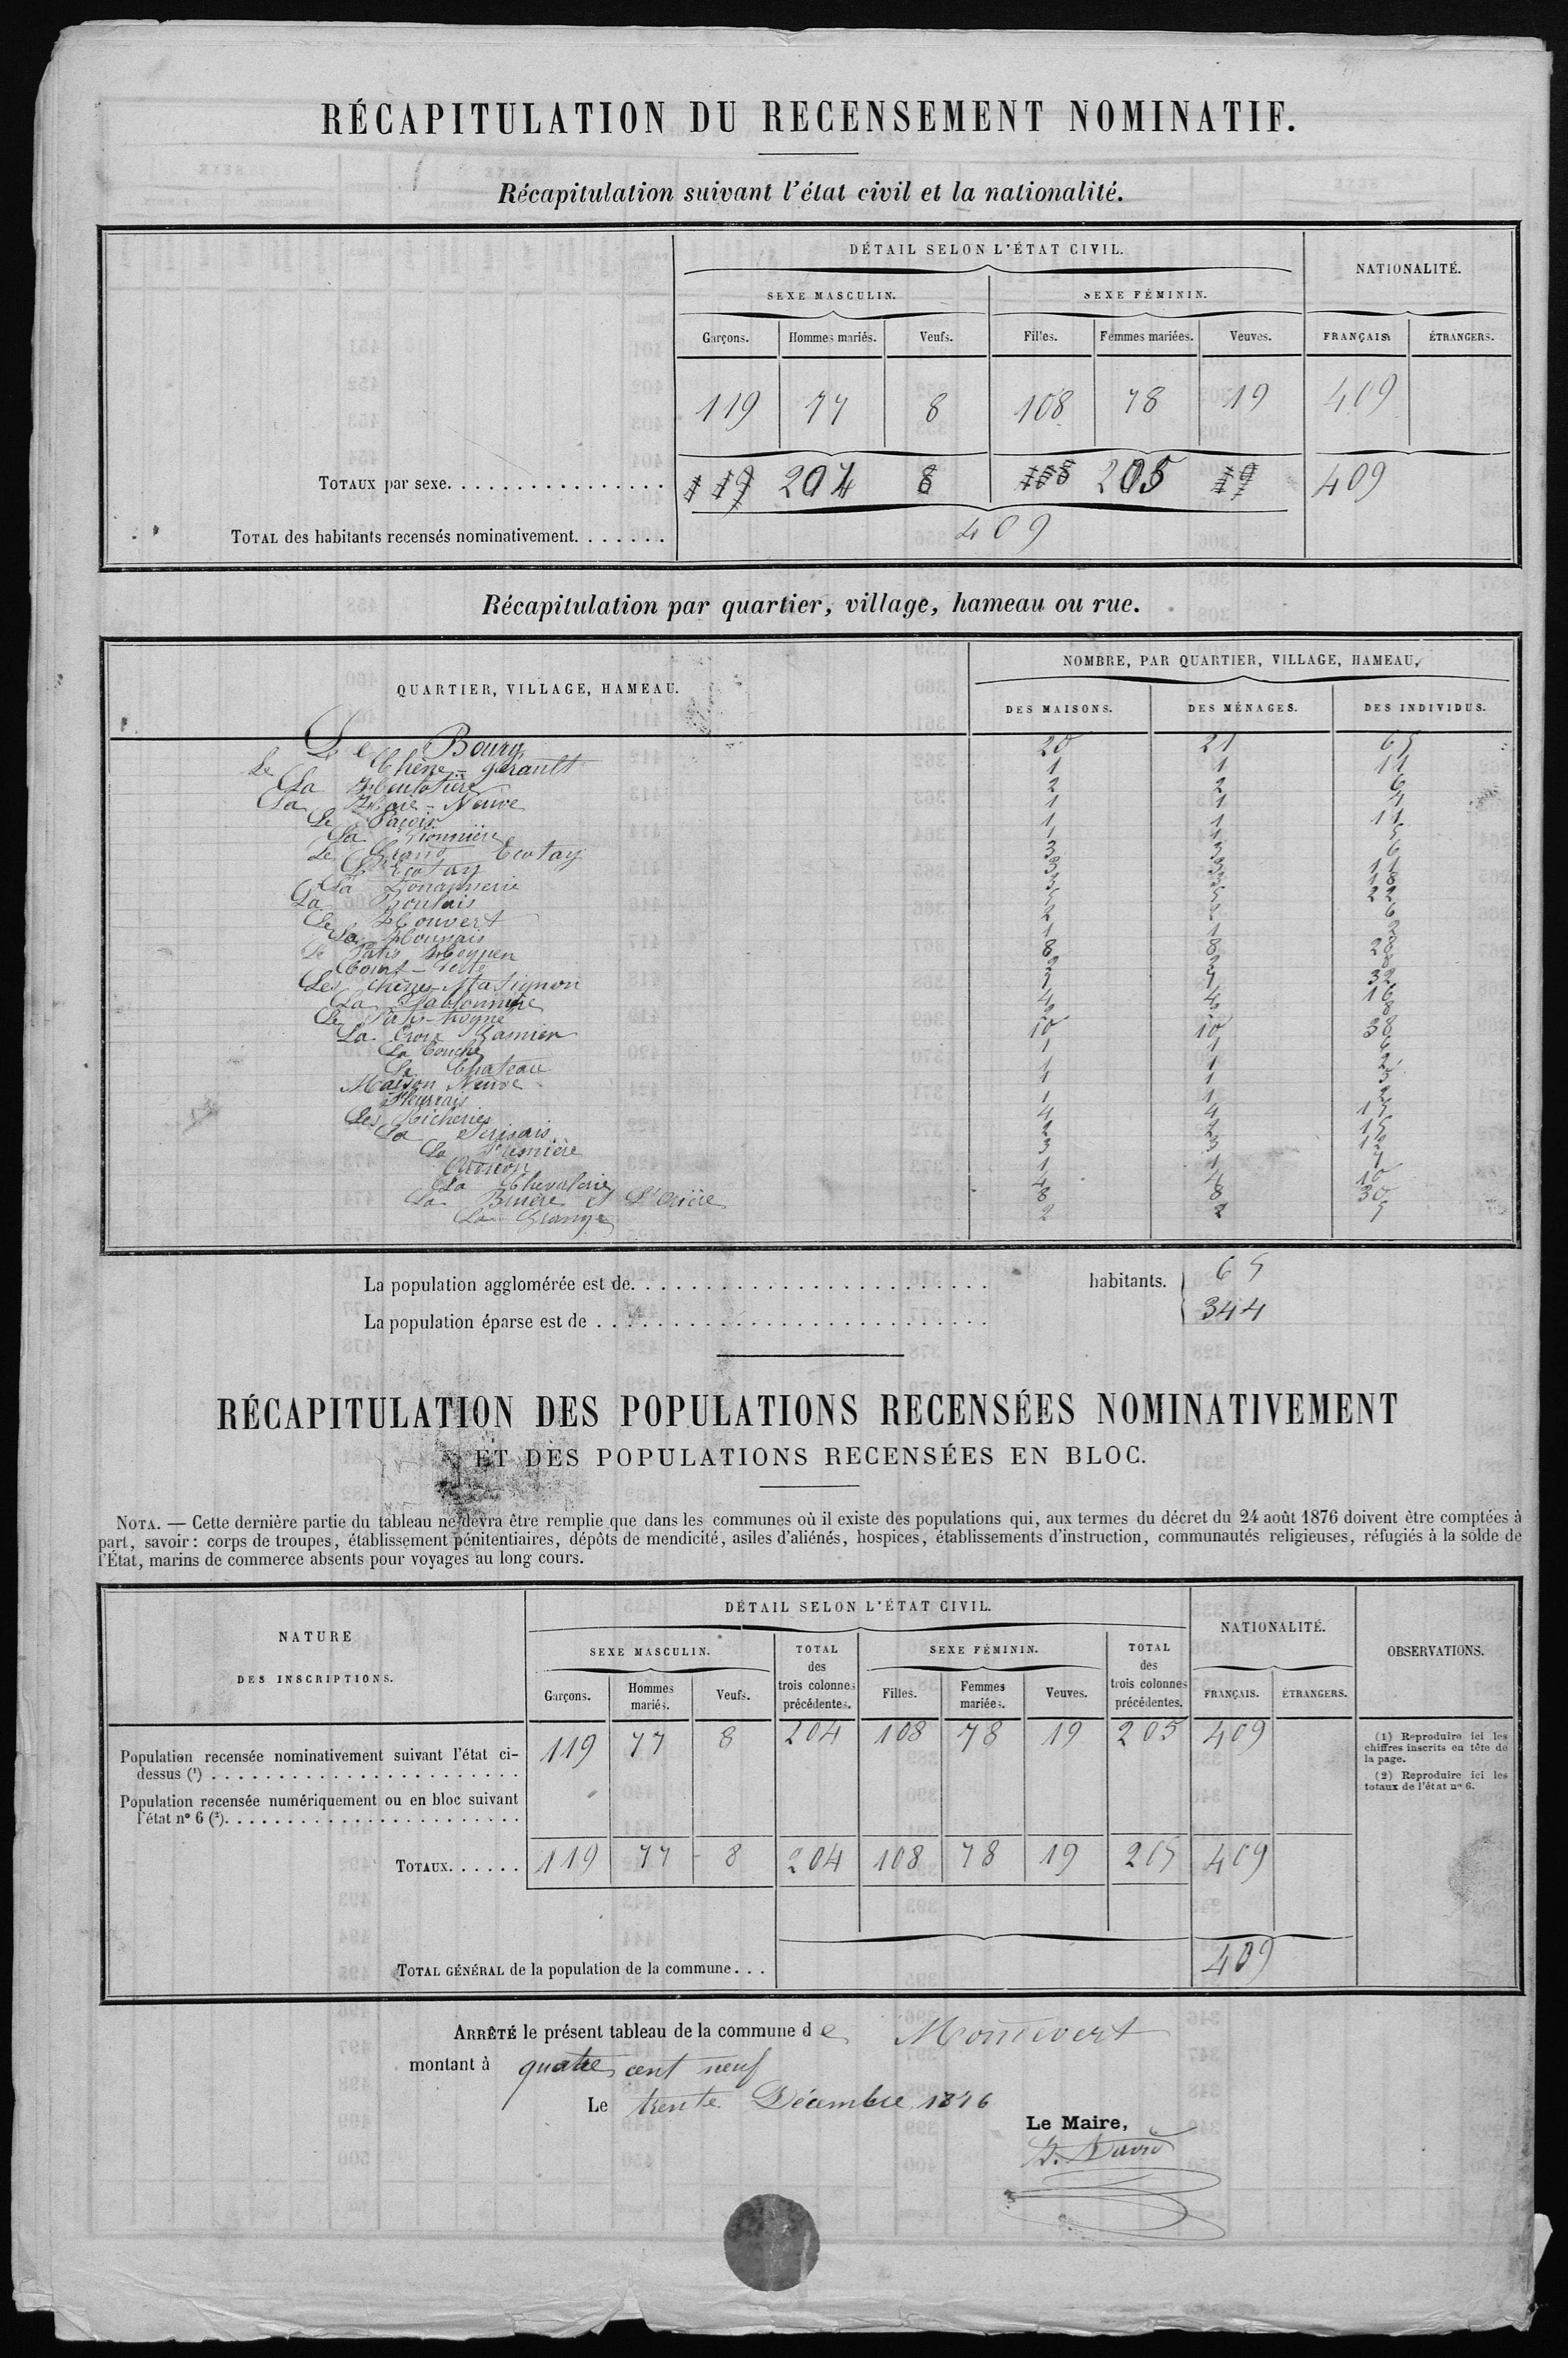 RÉCAPITULATION DU RECENSEMENT NOMINATIF.
Récapitulation suivant l'état civil et la nationalité.
DÉTAIL SELON L'ÉTAT CIVIL.
NATIONALITÉ.
SEXE MASCULIN. SEXE FÉMININ.
Garçons. Hommes mariés. Veufs. Filles. Femmes mariées. Veuves. FRANÇAIS. ÉTRANGERS.
119 77 8 108 78 19 409
TOTAUX par sexe. 119 204 8 108 205 19 409
TOTAL des habitants recensés nominativement. 409
Récapitulation par quartier, village, hameau ou rue.
QUARTIER, VILLAGE, HAMEAU.
NOMBRE, PAR QUARTIER, VILLAGE, HAMEAU,
DES MAISONS. DES MÉNAGES. DES INDIVIDUS.
Le Bourg 20 21 65
Le Chêne-gérault 1 1 11
La 2 2 6
La Neuve 1 1
Le 1 1 11
La 1 1 5
Le Grand Ecotay 3 3 6
Ecotay 3 3 11
La 3 3 18
La Boulais 5 5 22
Le 2 2 6
La 1 1
Le Patis 8 8 28
Court-Verte 2 2 8
Les Chênes-Matignon 7 7 32
La Sablonnière 4 4 16
Le Patis 2 2 8
La Croix Garnier 10 10 38
La Touche 1 1
Le Chateau 1 1 2
Maison Neuve 1 1
1 1 2
Les Richeries 4 4 15
La 2 2 15
La 3 3 12
1 1 7
La Chevalerie 4 4 10
La Bruère et 8 8 30
La Grange 2 2 5
La population agglomérée est de. habitants. 65
La population éparse est de 344
RÉCAPITULATION DES POPULATIONS RECENSÉES NOMINATIVEMENT
ET DES POPULATIONS RECENSÉES EN BLOC.
NOTA. — Cette dernière partie du tableau ne devra être remplie que dans les communes où il existe des populations qui, aux termes du décret du 24 août 1876 doivent être comptées à
part, savoir: corps de troupes, établissement pénitentiaires, dépôts de mendicité, asiles d'aliénés, hospices, établissements d'instruction, communautés religieuses, réfugiés à la solde de
l'État, marins de commerce absents pour voyages au long cours.
NATURE
DES INSCRIPTIONS.
DÉTAIL SELON L'ÉTAT CIVIL.
NATIONALITÉ.
OBSERVATIONS.
SEXE MASCULIN. TOTAL des trois colonnes précédentes. SEXE FÉMININ. TOTAL des trois colonnes précédentes.
Garçons. Hommes mariés. Veufs. Filles. Femmes mariées. Veuves. FRANÇAIS. ÉTRANGERS.
Population recensée nominativement suivant l'état ci-
dessus (1) 119 77 8 204 108 78 19 205 409
(1) Reproduire ici les
chiffres inscrits en tête de
la page.
(2) Reproduire ici les
totaux de l'état n° 6.
Population recensée numériquement ou en bloc suivant
l'état n° 6 (2).
TOTAUX. 119 77 8 204 108 78 19 205 409
TOTAL GÉNÉRAL de la population de la commune. 409
ARRÊTÉ le présent tableau de la commune de Montevert
montant à quatre cent neuf
Le trente Décembre 1876
Le Maire,
David